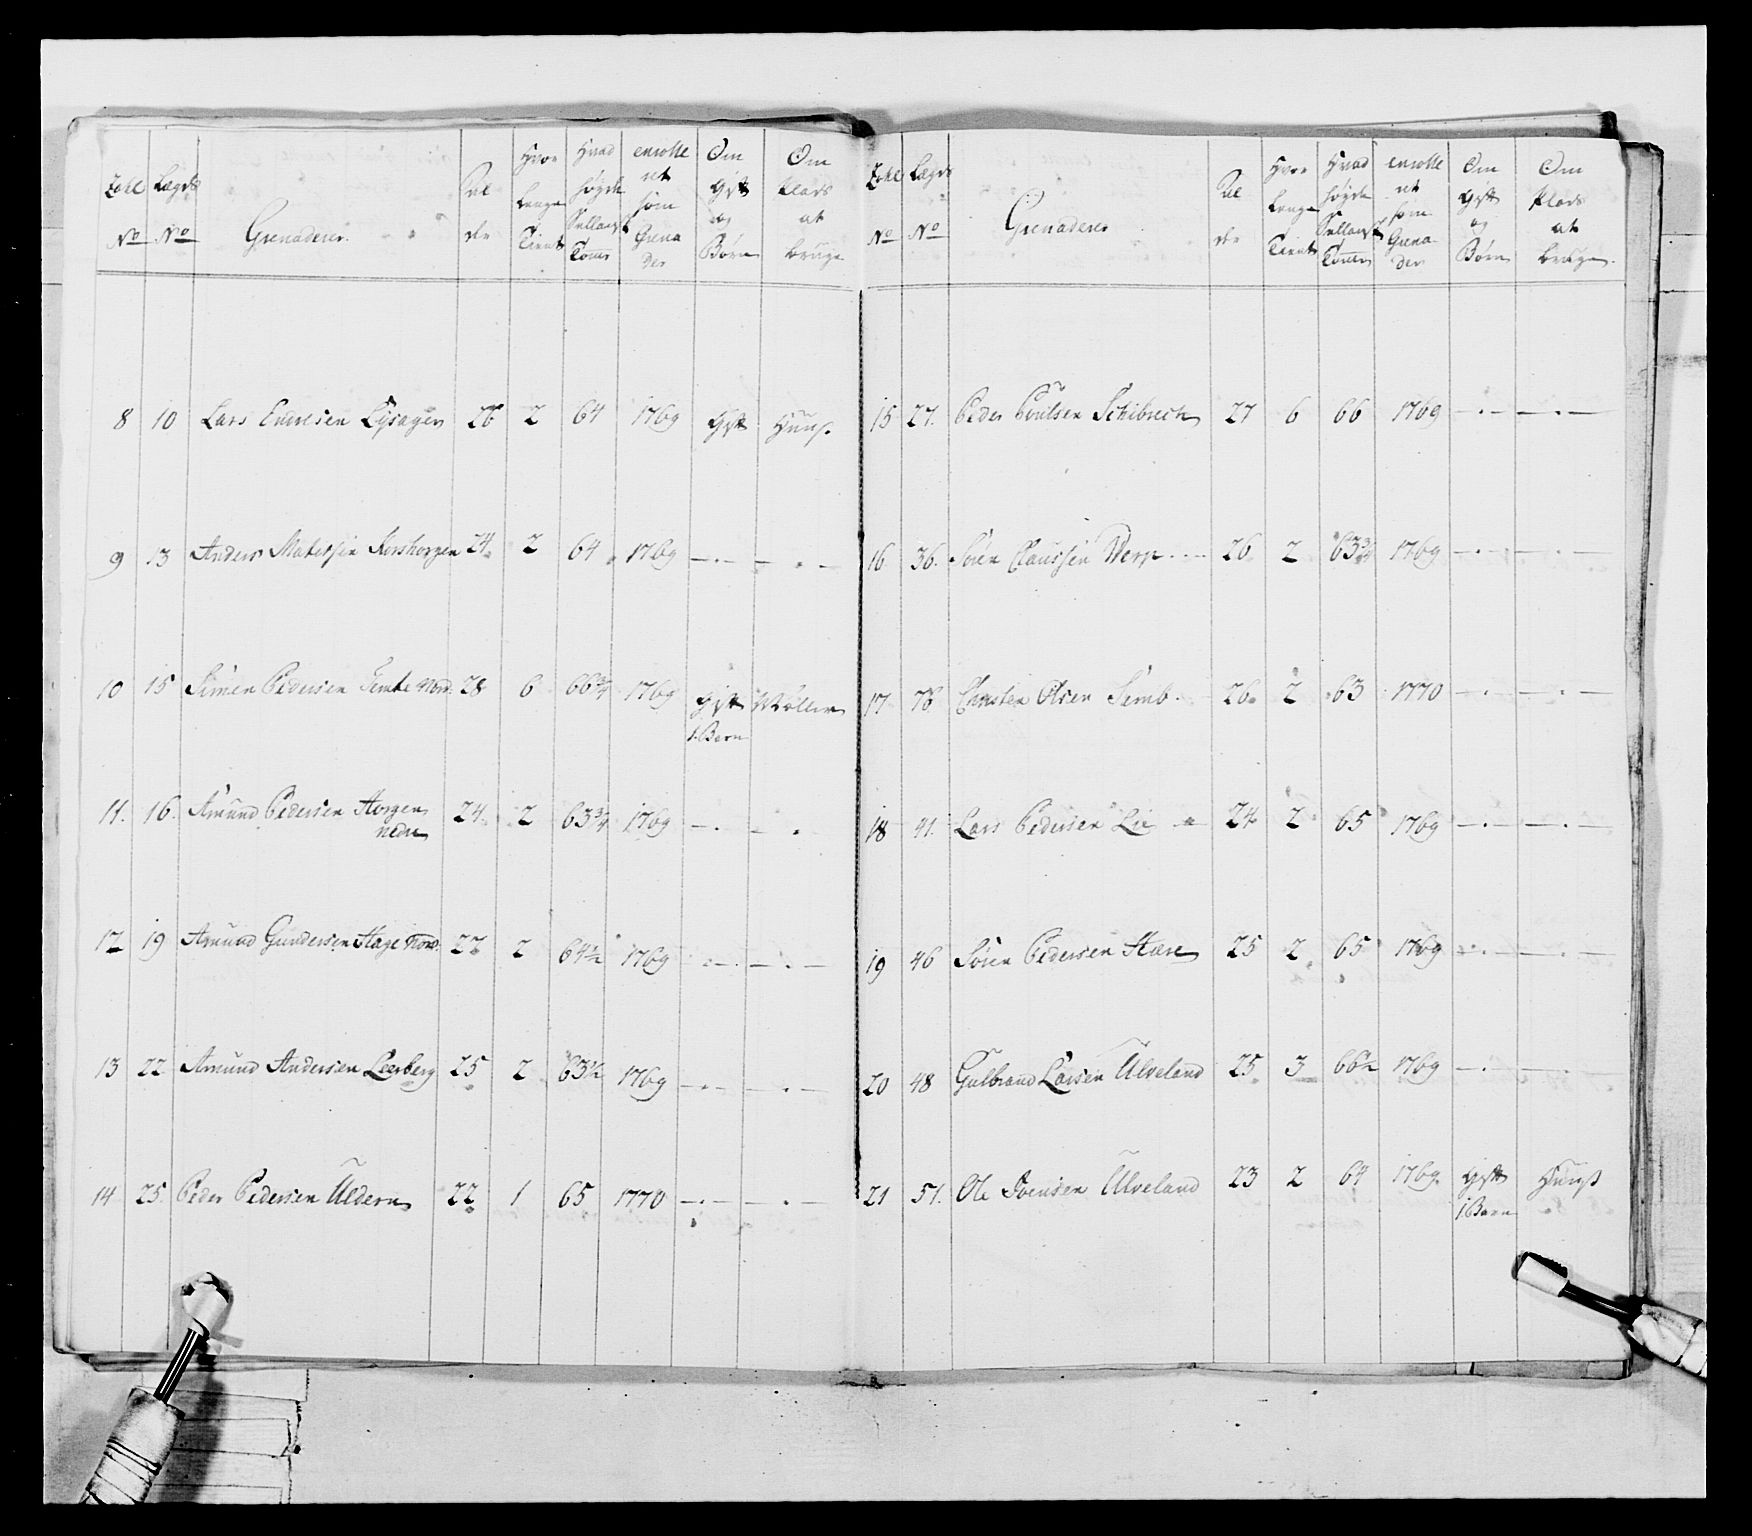 Zahl No | Lægds No | Grenaderer | Al der | Hvor Længe Tient | Hvad høyde Sellandsk Tomer | enrolleret som Grenader | Om Gift og Børn | Om Plads at bruge
8 | 10 | Lars Endresen | 26 | 2 | 64 | 1769 | Gift | Huus
9 | 13 | Anders Matessen Korshorgen | 24 | 2 | 64 | 1769 | — . — | — . —
10 | 15 | Simen Pedersen Semle Nord. | 28 | 6 | 66 3/4 | 1769 | Gift | Møller
1. Barn
11. | 16. | Amund Pedersen Horgen | 24. | 2 | 63 3/4 | 1769 | — . | — .
nedre
12 | 19 | Amund Gundersen Hage Nord. | 22 | 2 | 64 1/2 | 1769 | — . — | — . —
13 | 22 | Amund Andersen Leerberg | 25 | 2 | 63 1/2 | 1769 | — . — | — . —
14 | 25. | Peder Pedersen Uldern | 22 | 1 | 65 | 1770 | — . — | — . —
Zahl No | Lægds No | Grenaderer | Al der | Hvor Længe Tient | Hvad høyde Sellandsk Tomer | enrolleret som Grenader | Om Gift og Børn | Om Plads at bruge
15 | 27. | Peder Poulsen Schibrech | 27 | 6 | 66 | 1769 | — . — | — . —
16 | 36. | Søren Claussen Werp | 26 | 2 | 63 3/4 | 1769 | — . — | — . —
17 | Christen Olsen Semb. | 26. | 2 | 63 | 1770 | — . — | — . —
18 | 41. | Lars Pedersen Lie | 24 | 2 | 65 | 1769 | — . — | — . —
19 | 46 | Søren Pedersen Hære | 25 | 2 | 65 | 1769 | — . — | — . —
20 | 48 | Gulbrand Larsen Ulveland | 25 | 3 | 66 1/2 | 1769 | — . — | — . —
21 | 51. | Ole Svensen Ulveland | 23 | 2 | 64 | 1769. | Gift | Huus
1. Barn